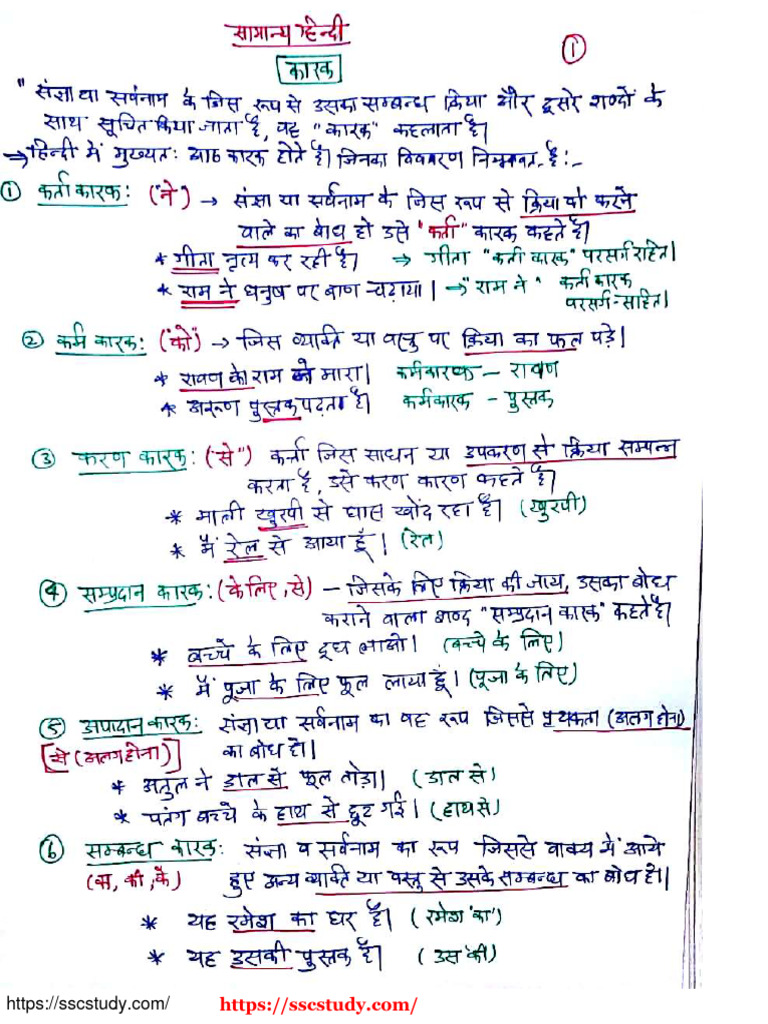 सामान्य हिन्दी
1
कारक
"संज्ञा या सर्वनाम के जिस रूप से उसका सम्बन्ध क्रिया और दूसरे शब्दों के
साथ सूचित किया जाता है, वह "कारक" कहलाता है।
⇒ हिन्दी में मुख्यतः आठ कारक होते हैं। जिनका विवरण निम्नवत है:-
① कर्ता कारक: ("ने") → संज्ञा या सर्वनाम के जिस रूप से क्रिया को करने
वाले का बोध हो उसे "कर्ता" कारक कहते हैं।
* गीता नृत्य कर रही है। ⇒ गीता "कर्ता कारक" परसर्ग रहित।
* राम ने धनुष पर बाण चढ़ाया। → "राम ने" कर्ता कारक
परसर्ग-सहित।
② कर्म कारक: ("को") → जिस व्यक्ति या वस्तु पर क्रिया का फल पड़े।
* रावण को राम ने मारा। कर्मकारक – रावण
* अरुण पुस्तक पढ़ता है। कर्मकारक – पुस्तक
③ करण कारक: ("से") कर्त्ता जिस साधन या उपकरण से क्रिया सम्पन्न
करता है, उसे करण कारण कहते हैं।
* माली खुरपी से घास खोंद रहा है। (खुरपी)
* मैं रेल से आया हूँ। (रेल)
④ सम्प्रदान कारक: (के लिए, से) – जिसके लिए क्रिया की जाय, उसका बोध
कराने वाला शब्द "सम्प्रदान कारक" कहते हैं।
* बच्चे के लिए दूध लाओ। (बच्चे के लिए)
* मैं पूजा के लिए फूल लाया हूँ। (पूजा के लिए)
⑤ अपादान कारक: संज्ञा या सर्वनाम का वह रूप जिससे पृथकता (अलग होना)
[से (अलग होना)] का बोध हो।
* अतुल ने डाल से फूल तोड़ा। (डाल से)
* पतंग बच्चे के हाथ से छूट गई। (हाथ से)
⑥ सम्बन्ध कारक: संज्ञा व सर्वनाम का रूप जिससे वाक्य में आये
(का, की, के) हुए अन्य व्यक्ति या वस्तु से उसके सम्बन्ध का बोध हो।
* यह रमेश का घर है। (रमेश 'का')
* यह उसकी पुस्तक है। (उस 'की')
https://sscstudy.com/ https://sscstudy.com/